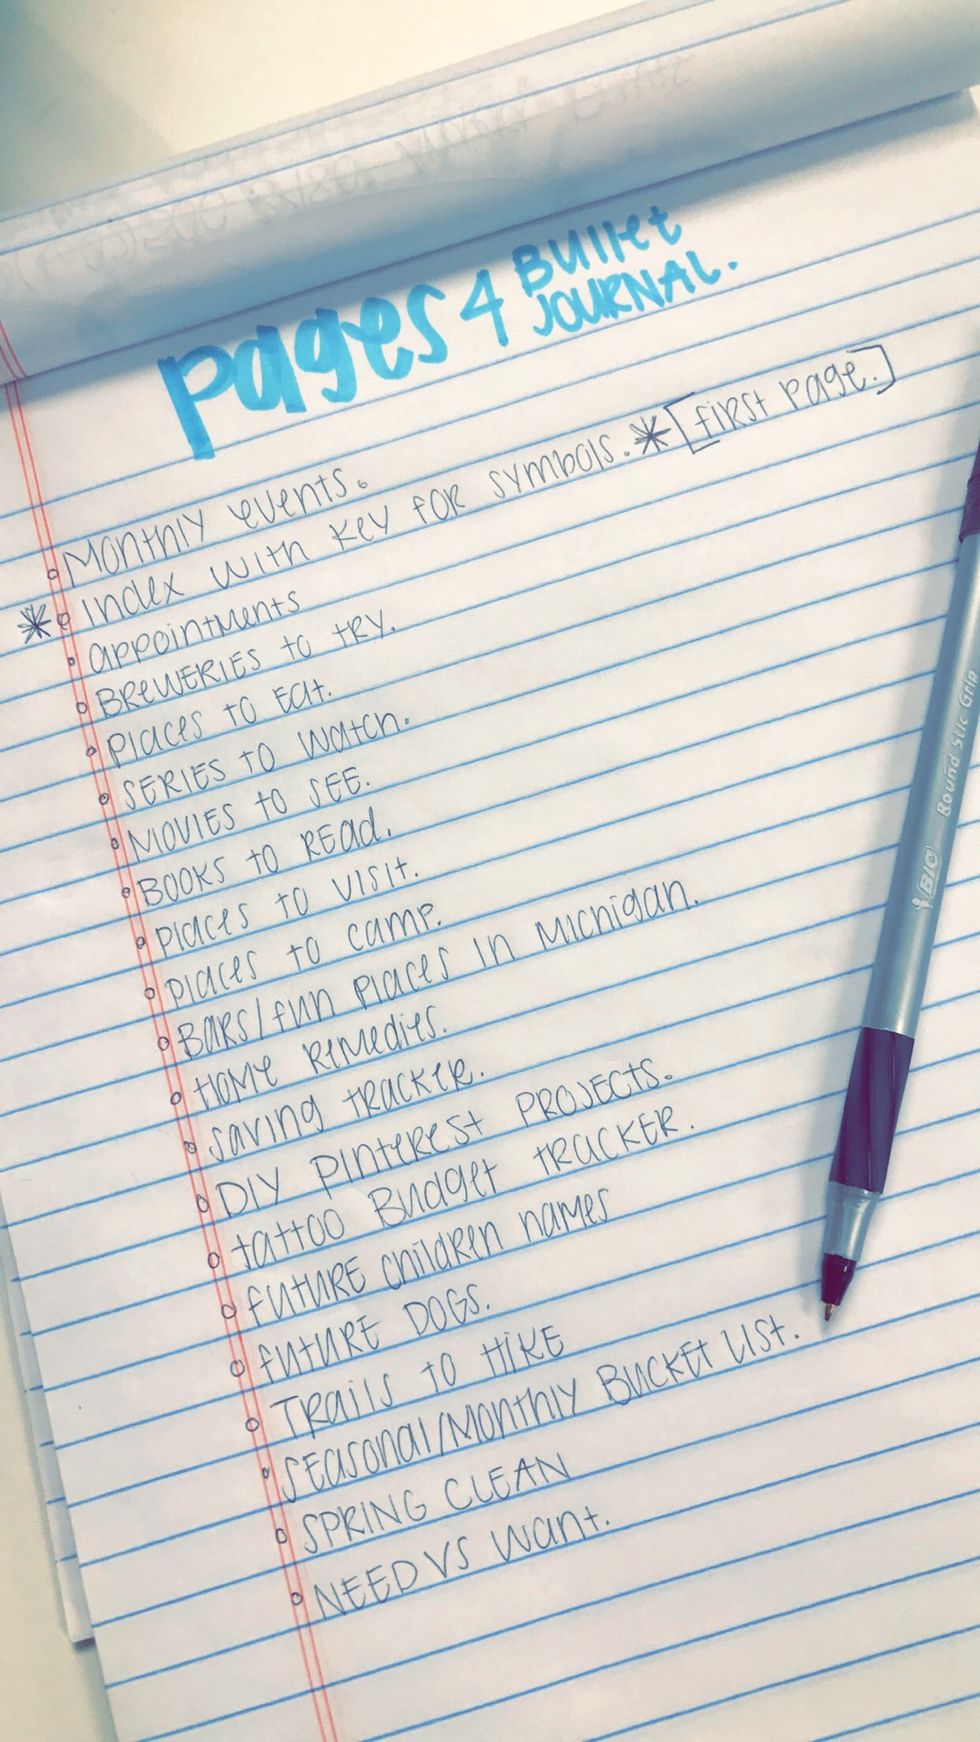 pages 4 Bullet
JOURNAL.
Monthly events.
* index with key for symbols. * [first page.]
appointments
BREWERIES to try.
places to Eat.
SERIES to watch.
MOVIES to SEE.
BOOKS to READ.
places to visit.
places to camp.
Bars/fun places in Michigan.
Home Remedies.
saving tracker.
DIY Pinterest PROJECTS.
tattoo Budget tracker.
future children names
future DOGS.
Trails to Hike
Seasonal/Monthly Bucket List.
SPRING CLEAN
NEED VS want.
BIC Round Stic Grip